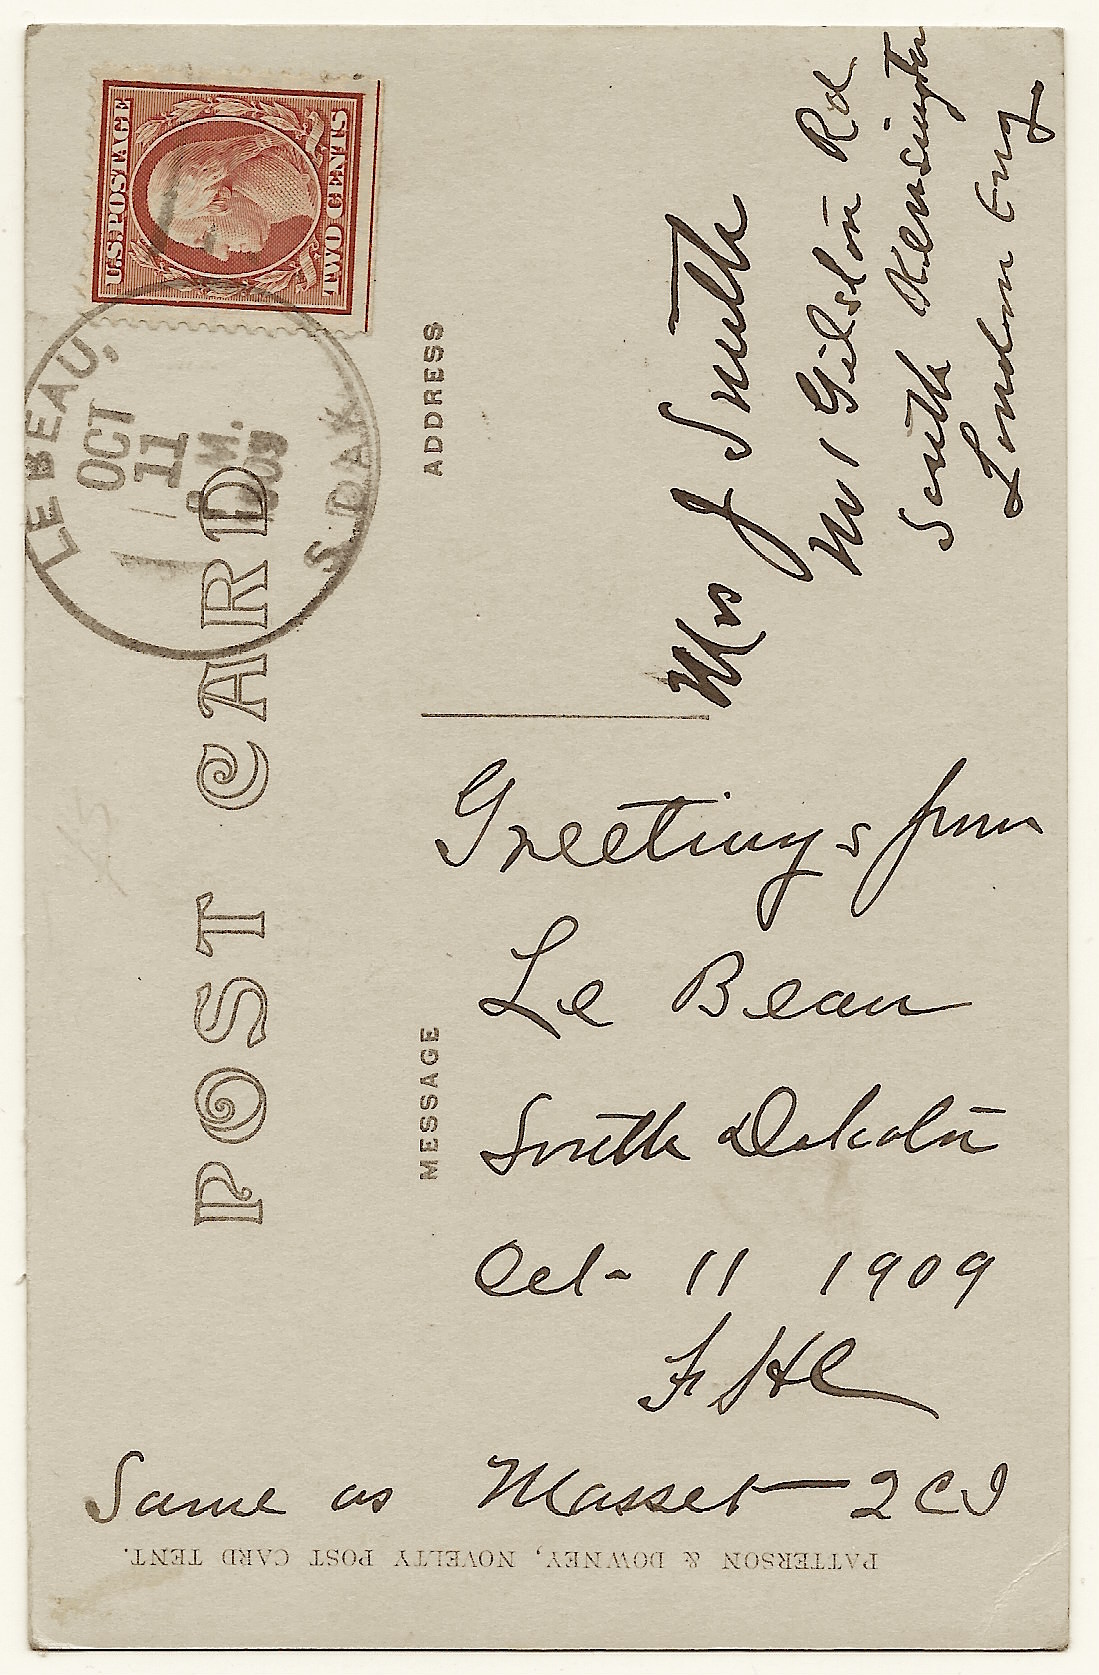 U.S. POSTAGE
TWO CENTS
LE BEAU,
S. DAK.
OCT
11
M.
POST CARD
ADDRESS
Mrs J Smith
No 1 Gilston Rd
South Kensington
London Eng
MESSAGE
Greetings from
Le Beau
South Dakota
Oct- 11 1909
Same as Masset
PATTERSON & DOWNEY, NOVELTY POST CARD TENT.